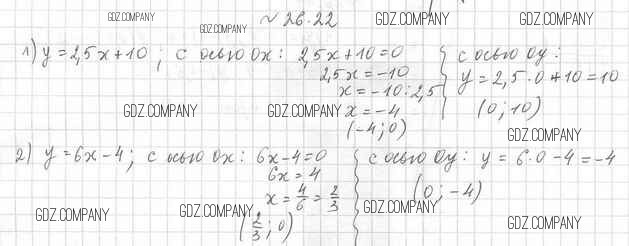 GDZ.COMPANY
GDZ.COMPANY
№ 26.22
GDZ.COMPANY
GDZ.COMPANY
1) y = 2,5x + 10 ; с осью Ox: 2,5x + 10 = 0
2,5x = -10
x = -10 : 2,5
x = -4
(-4; 0)
с осью Oy:
y = 2,5 · 0 + 10 = 10
(0; 10)
GDZ.COMPANY
GDZ.COMPANY
GDZ.COMPANY
2) y = 6x - 4; с осью Ox: 6x - 4 = 0
6x = 4
x = 4/6 = 2/3
(2/3; 0)
с осью Oy: y = 6 · 0 - 4 = -4
(0; -4)
GDZ.COMPANY
GDZ.COMPANY
GDZ.COMPANY
GDZ.COMPANY